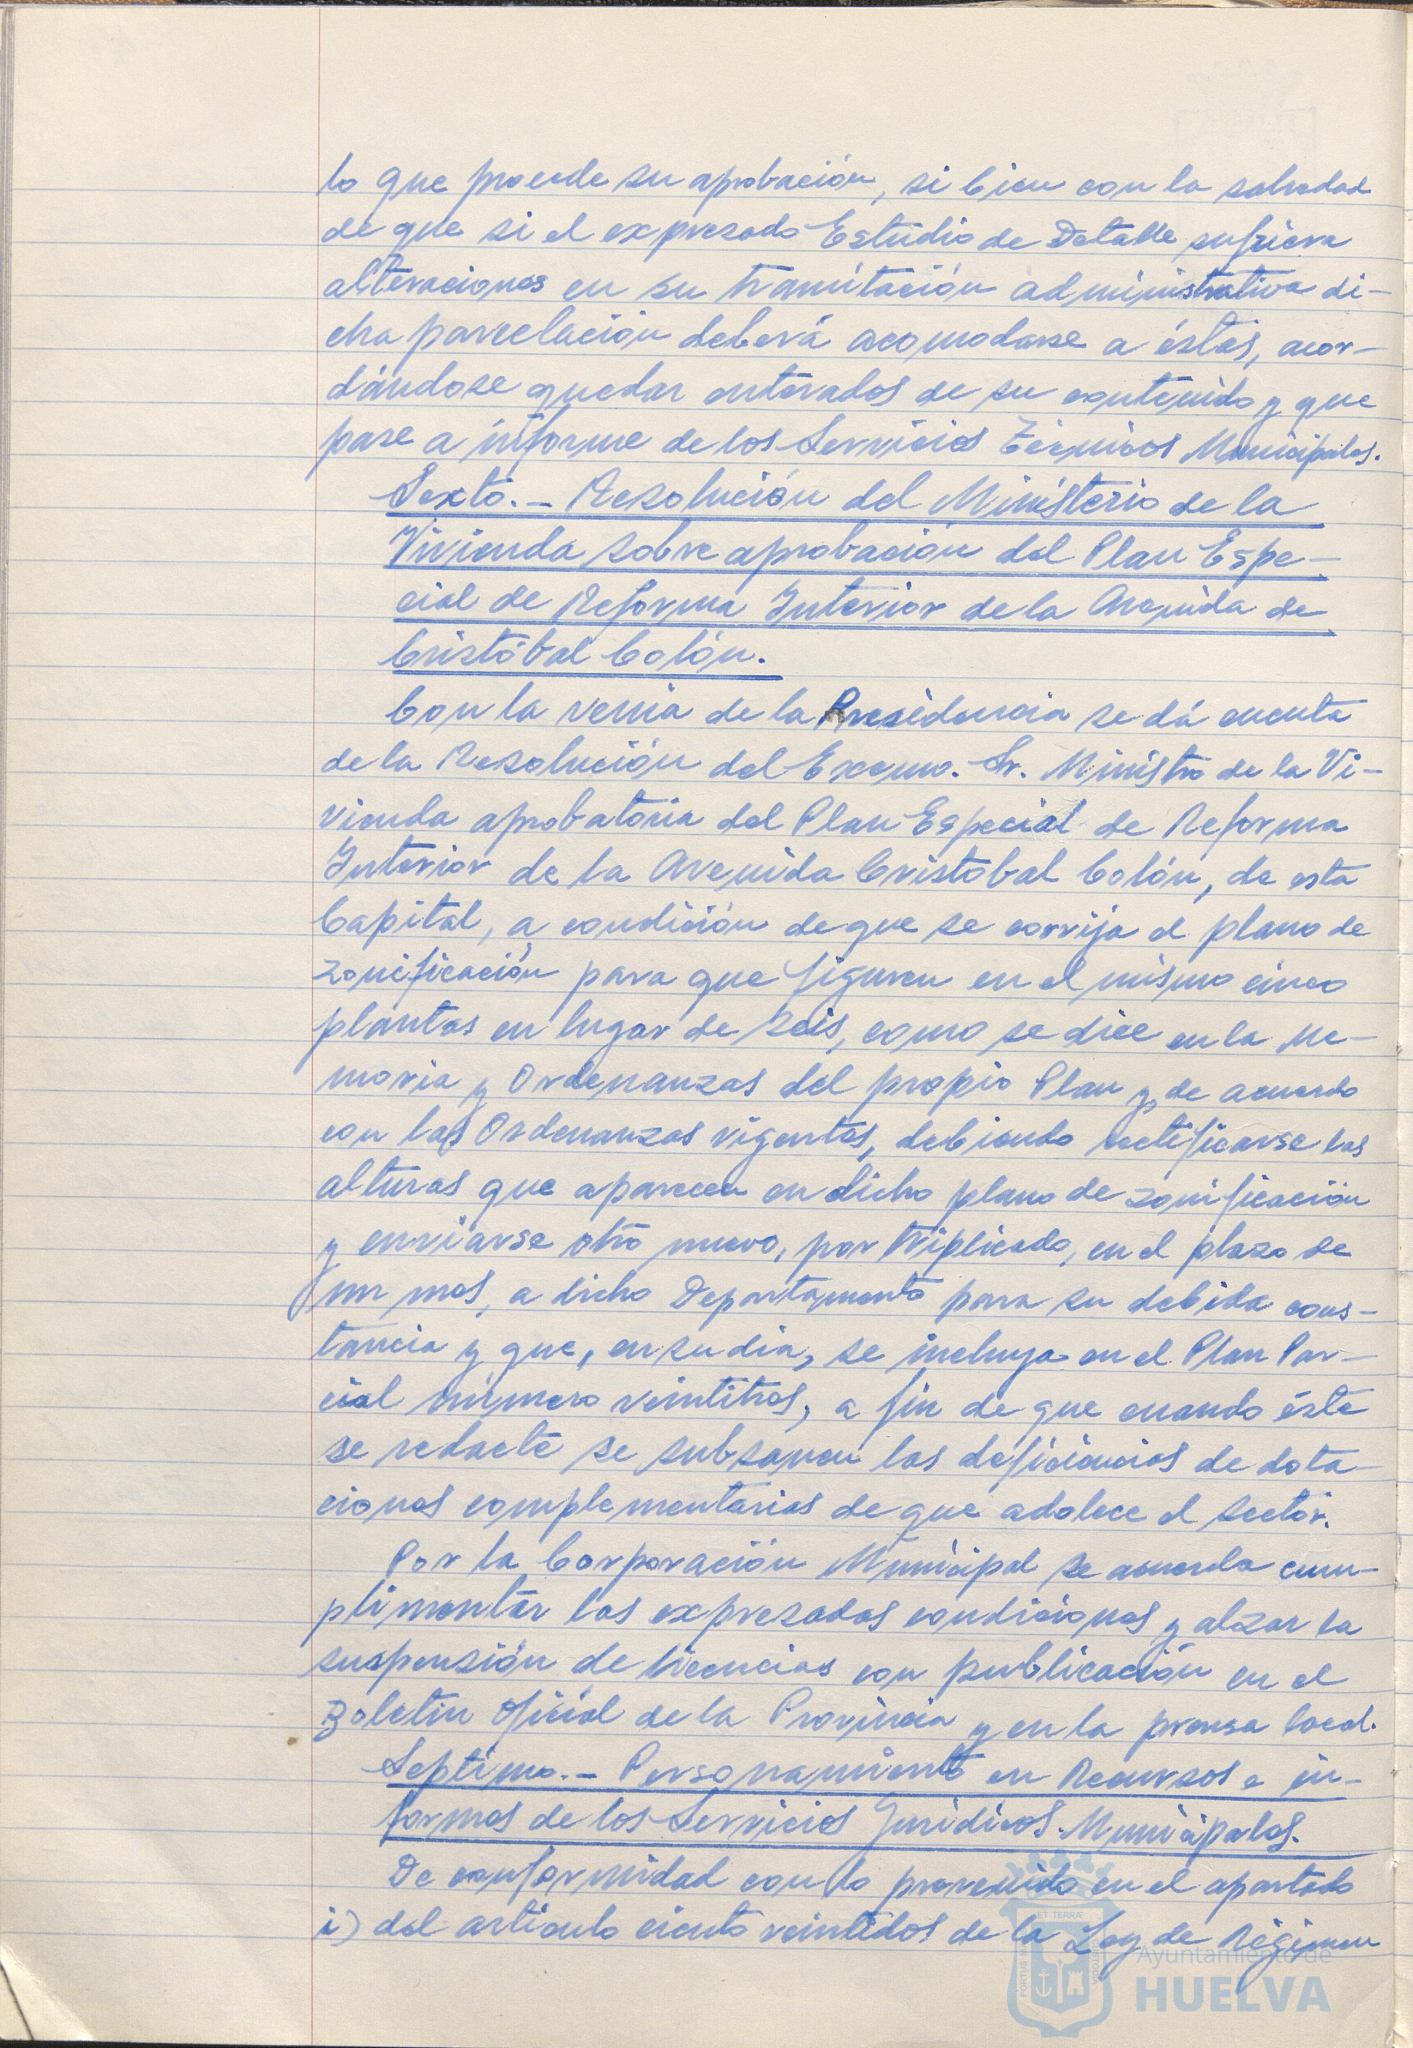 lo que procede su aprobación, si bien con la salvedad
de que si el expresado Estudio de Detalle sufriera
alteraciones en su tramitación administrativa di-
cha parcelación deberá acomodarse a éstas, acor-
dándose quedar enterados de su contenido y que
pase a informe de los Servicios Técnicos Municipales.
Sexto.- Resolución del Ministerio de la
Vivienda sobre aprobación del Plan Espe-
cial de Reforma Interior de la Avenida de
Cristóbal Colón.
Con la venia de la Presidencia se dá cuenta
de la Resolución del Excmo. Sr. Ministro de la Vi-
vienda aprobatoria del Plan Especial de Reforma
Interior de la Avenida Cristóbal Colón, de esta
Capital, a condición de que se corrija el plano de
zonificación para que figuren en el mismo cinco
plantas en lugar de seis, como se dice en la Me-
moria y Ordenanzas del propio Plan y de acuerdo
con las Ordenanzas vigentes, debiendo rectificarse las
alturas que aparecen en dicho plano de zonificación
y enviarse otro nuevo, por triplicado, en el plazo de
un mes, a dicho Departamento para su debida cons-
tancia y que, en su día, se incluya en el Plan Par-
cial número veintitres, a fin de que cuando éste
se redacte se subsanen las deficiencias de dota-
ciones complementarias de que adolece el sector.
Por la Corporación Municipal se acuerda cum-
plimentar las expresadas condiciones y alzar la
suspensión de licencias con publicación en el
Boletin Oficial de la Provincia y en la prensa local.
Septimo.- Personamiento en Recursos e in-
formes de los Servicios Jurídicos Municipales.
De conformidad con lo prevenido en el apartado
i) del articulo ciento veintidos de la Ley de Régimen
Ayuntamiento de
HUELVA